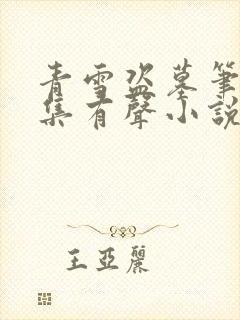 青雪盗墓筆
集有聲小說
王亞麗